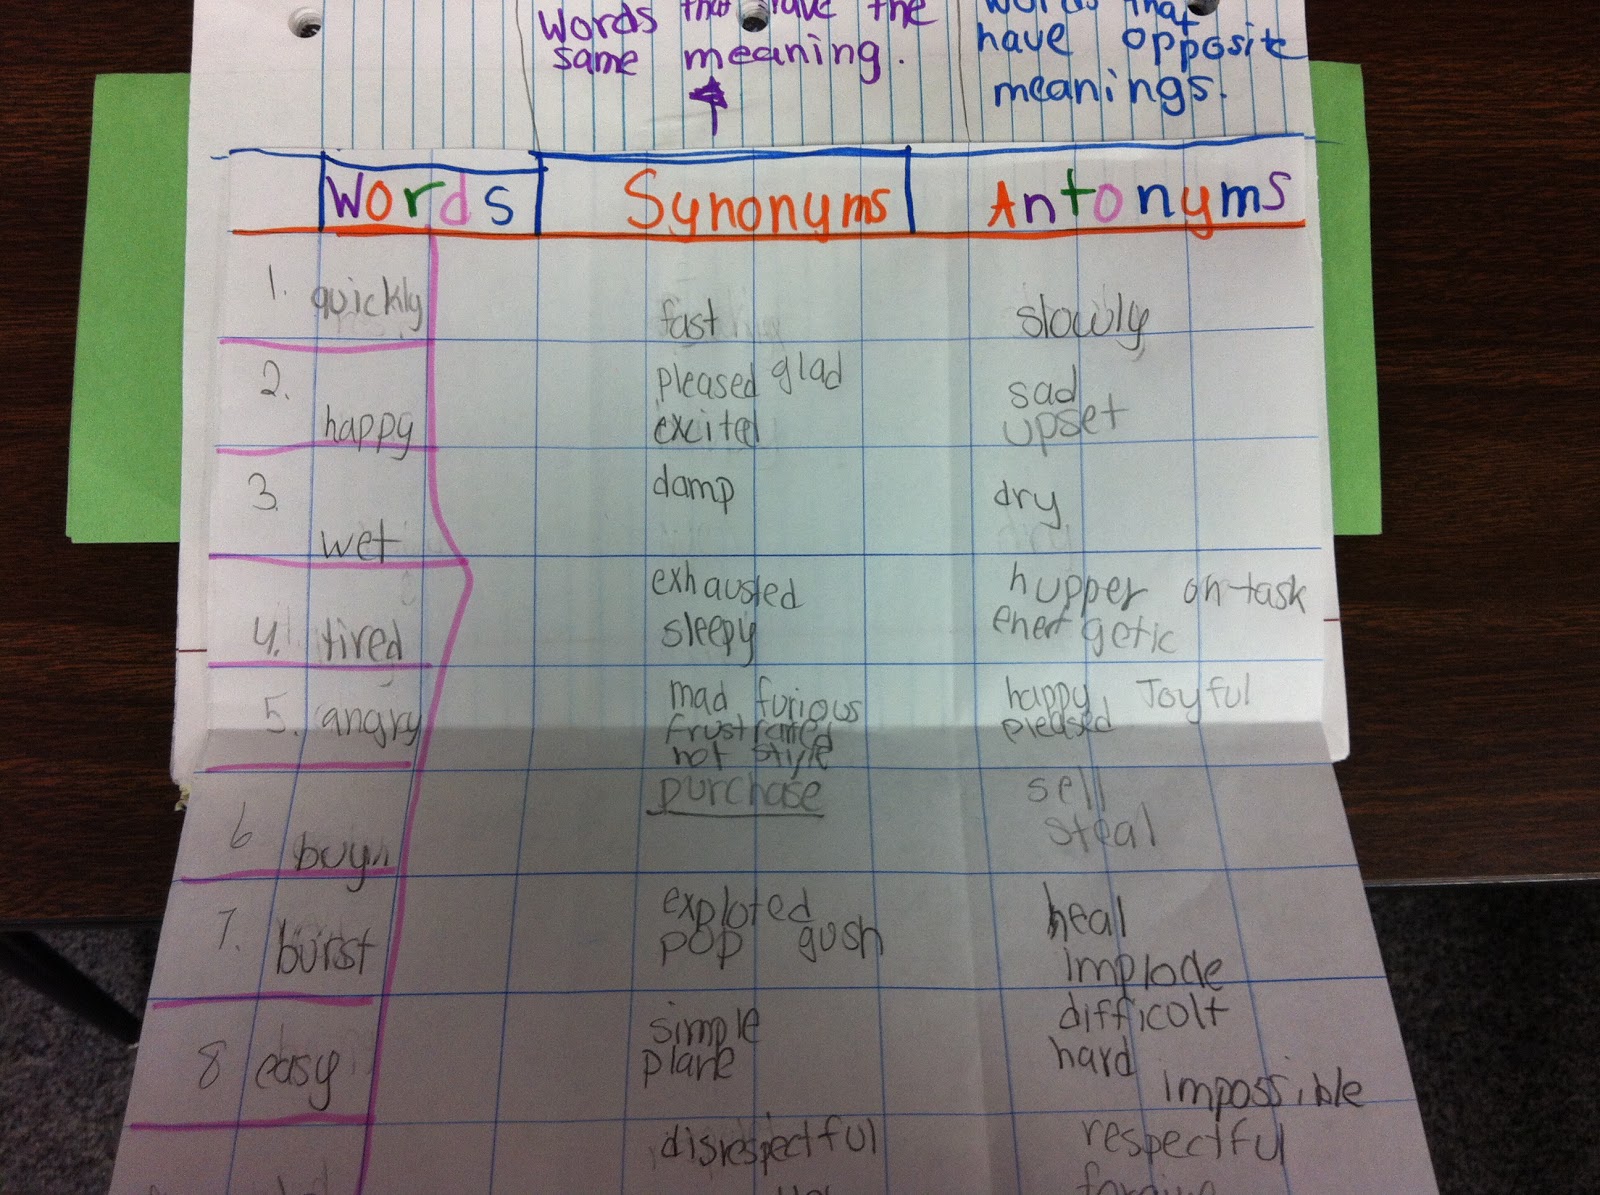 words that have the
same meaning.
words that
have opposite
meanings.
Words Synonyms Antonyms
1. quickly fast slowly
2. happy pleased glad sad
excited upset
3. wet damp dry
4. tired exhausted hupper on-task
sleepy energetic
5. angry mad furious happy Joyful
frustrated pleased
hot style
6 buy purchase sell
steal
7. burst exploted heal
pop gush implode
8 easy simple difficolt
plane hard
impossible
disrespectful respectful